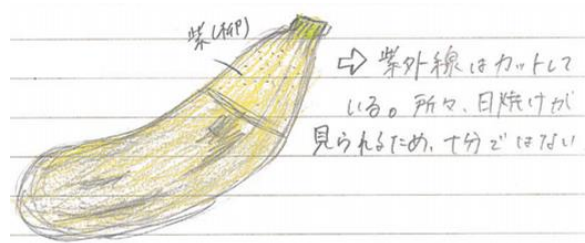 紫(柳)
⇨ 紫外線はカットして
いる。所々、日焼けが
見られるため、十分ではない